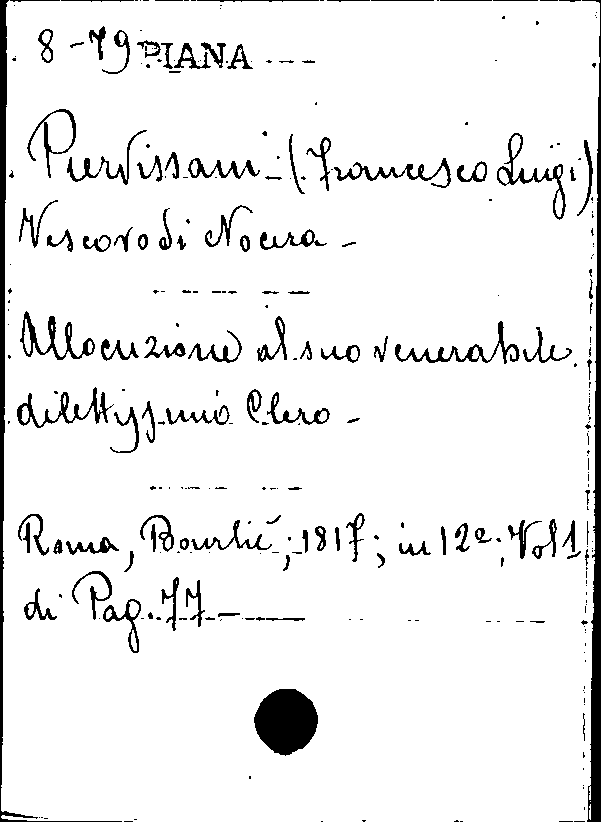 8-79 PIANA
Piervissani (Francesco Luigi)
Vescovo di Nocera -
Allocuzione al suo venerabile
dilettissimo Clero -
Roma, Bourlié, 1817; in 12º; Vol 1
di Pag. 77 -